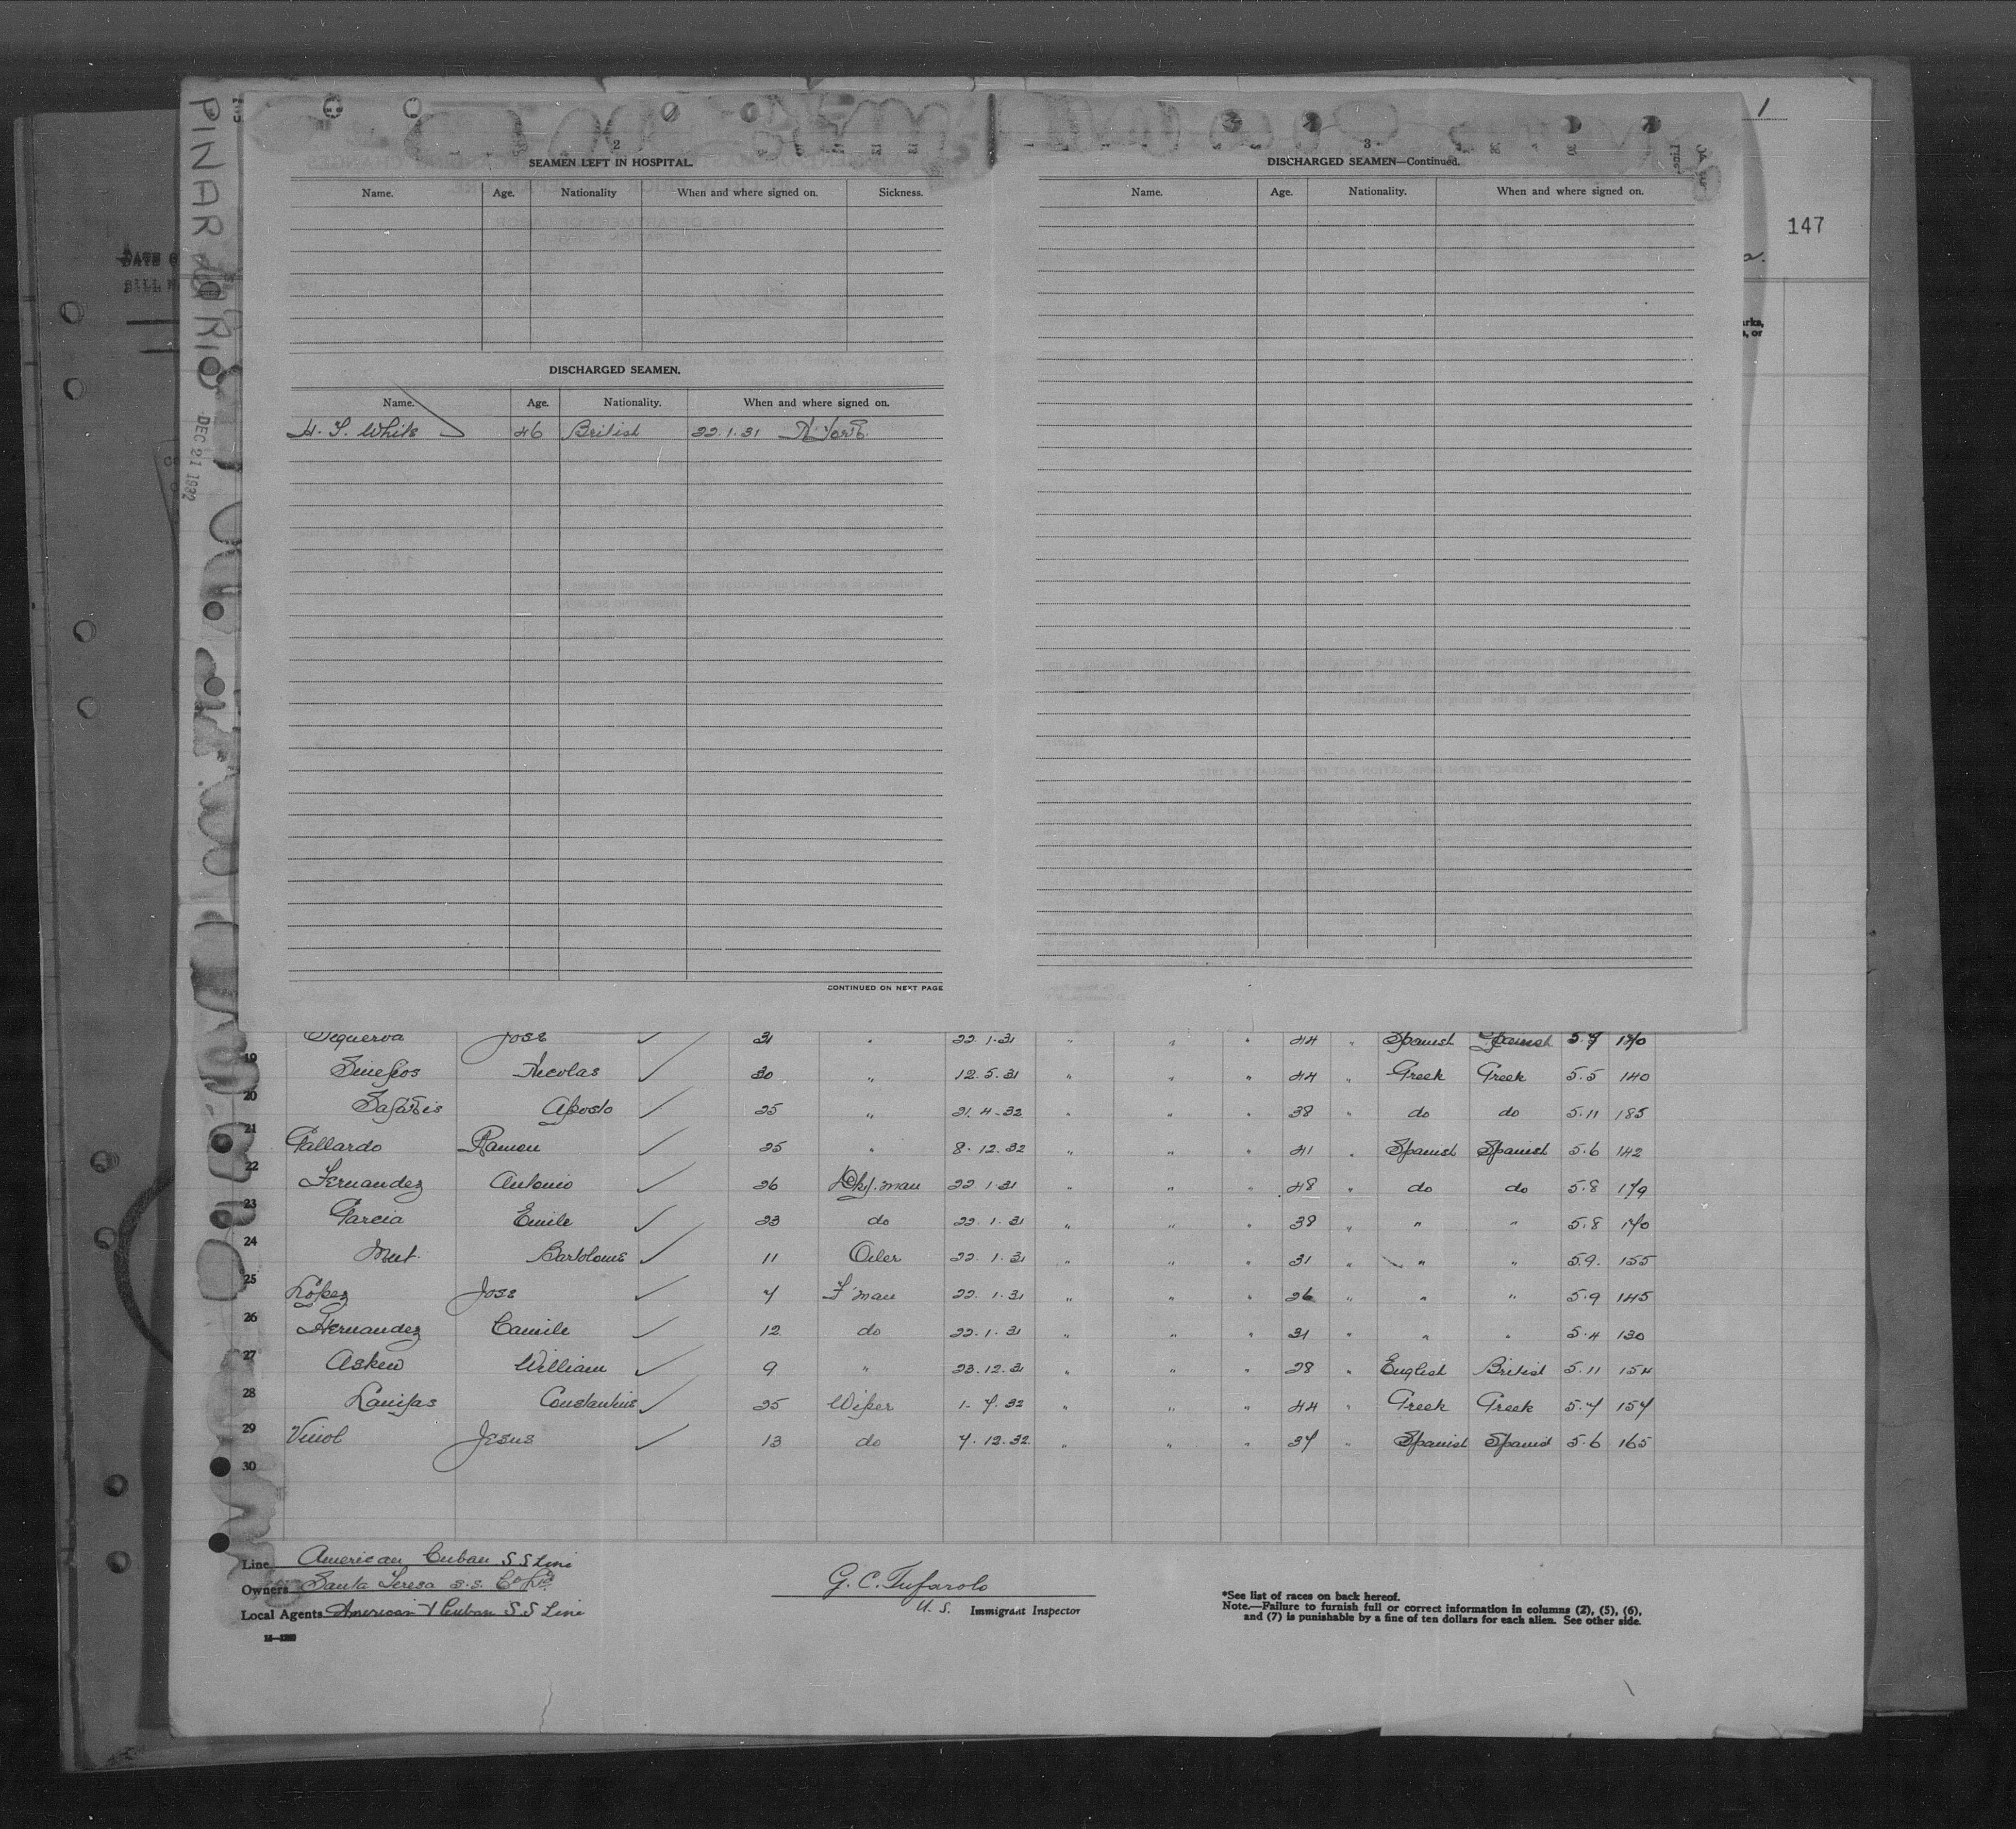 PINAR del RIO DEC 21 1932
1
147
2
SEAMEN LEFT IN HOSPITAL.
Name. Age. Nationality When and where signed on. Sickness.
DISCHARGED SEAMEN.
Name. Age. Nationality. When and where signed on.
H. T. White 46 British 22.1.31 N York.
CONTINUED ON NEXT PAGE
3
DISCHARGED SEAMEN—Continued.
Name. Age. Nationality. When and where signed on.
Line
Jose 31 " 22.1.31 " " " 44 " Spanish Spanish 5.7 170
19 Nicolas 30 " 12.5.31 " " " 44 " Greek Greek 5.5 140
20 Aposto 25 " 21.4.32 " " " 38 " do do 5.11 185
21 Gallardo Ramon 25 " 8.12.32 " " " 41 " Spanish Spanish 5.6 142
22 Fernandez Antonio 26 Dky.man 22.1.31 " " " 48 " do do 5.8 179
23 Garcia Emile 23 do 22.1.31 " " " 38 " " " 5.8 170
24 Mut. Bartolome 11 Oiler 22.1.31 " " " 31 " " " 5.9. 155
25 López Jose 7 F'man 22.1.31 " " " 26 " " " 5.9 145
26 Hernandez Camile 12 do 22.1.31 " " " 31 " " " 5.4 130
27 Askew William 9 " 23.12.31 " " " 28 " English British 5.11 154
28 Constantine 25 Wiper 1-7.32 " " " 44 " Greek Greek 5.7 157
29 Jesus 13 do 7.12.32 " " " 37 " Spanish Spanish 5.6 165
30
Line American Cuban S S Line
Owners Santa Teresa S.S. Co Ltd
Local Agents American & Cuban S S Line
G. C. Tufarolo
U. S. Immigrant Inspector
*See list of races on back hereof.
Note.—Failure to furnish full or correct information in columns (2), (5), (6),
and (7) is punishable by a fine of ten dollars for each alien. See other side.